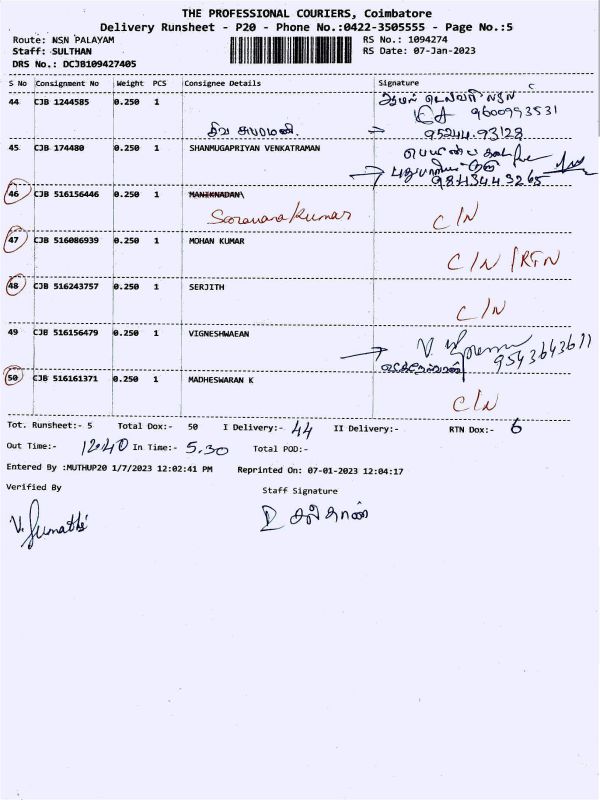 THE PROFESSIONAL COURIERS, Coimbatore
Delivery Runsheet - P20 - Phone No.:0422-3505555 - Page No.:5
Route: NSN PALAYAM RS No.: 1094274
Staff: SULTHAN RS Date: 07-Jan-2023
DRS No.: DCJB109427405
S No Consignment No Weight PCS Consignee Details Signature
44 CJB 1244585 0.250 1
9600993531
95244.93128
45 CJB 174480 0.250 1 SHANMUGAPRIYAN VENKATRAMAN
9843443265
46 CJB 516156446 0.250 1 MANIKNADAN\
Saravanakumar C/N
47 CJB 516086939 0.250 1 MOHAN KUMAR
C/N /RTN
48 CJB 516243757 0.250 1 SERJITH
C/N
49 CJB 516156479 0.250 1 VIGNESHWAEAN
9543643611
50 CJB 516161371 0.250 1 MADHESWARAN K
C/N
Tot. Runsheet:- 5 Total Dox:- 50 I Delivery:- 44 II Delivery:- RTN Dox:- 6
Out Time:- 12.40 In Time:- 5.30 Total POD:-
Entered By :MUTHUP20 1/7/2023 12:02:41 PM Reprinted On: 07-01-2023 12:04:17
Verified By Staff Signature
V. Sumathi